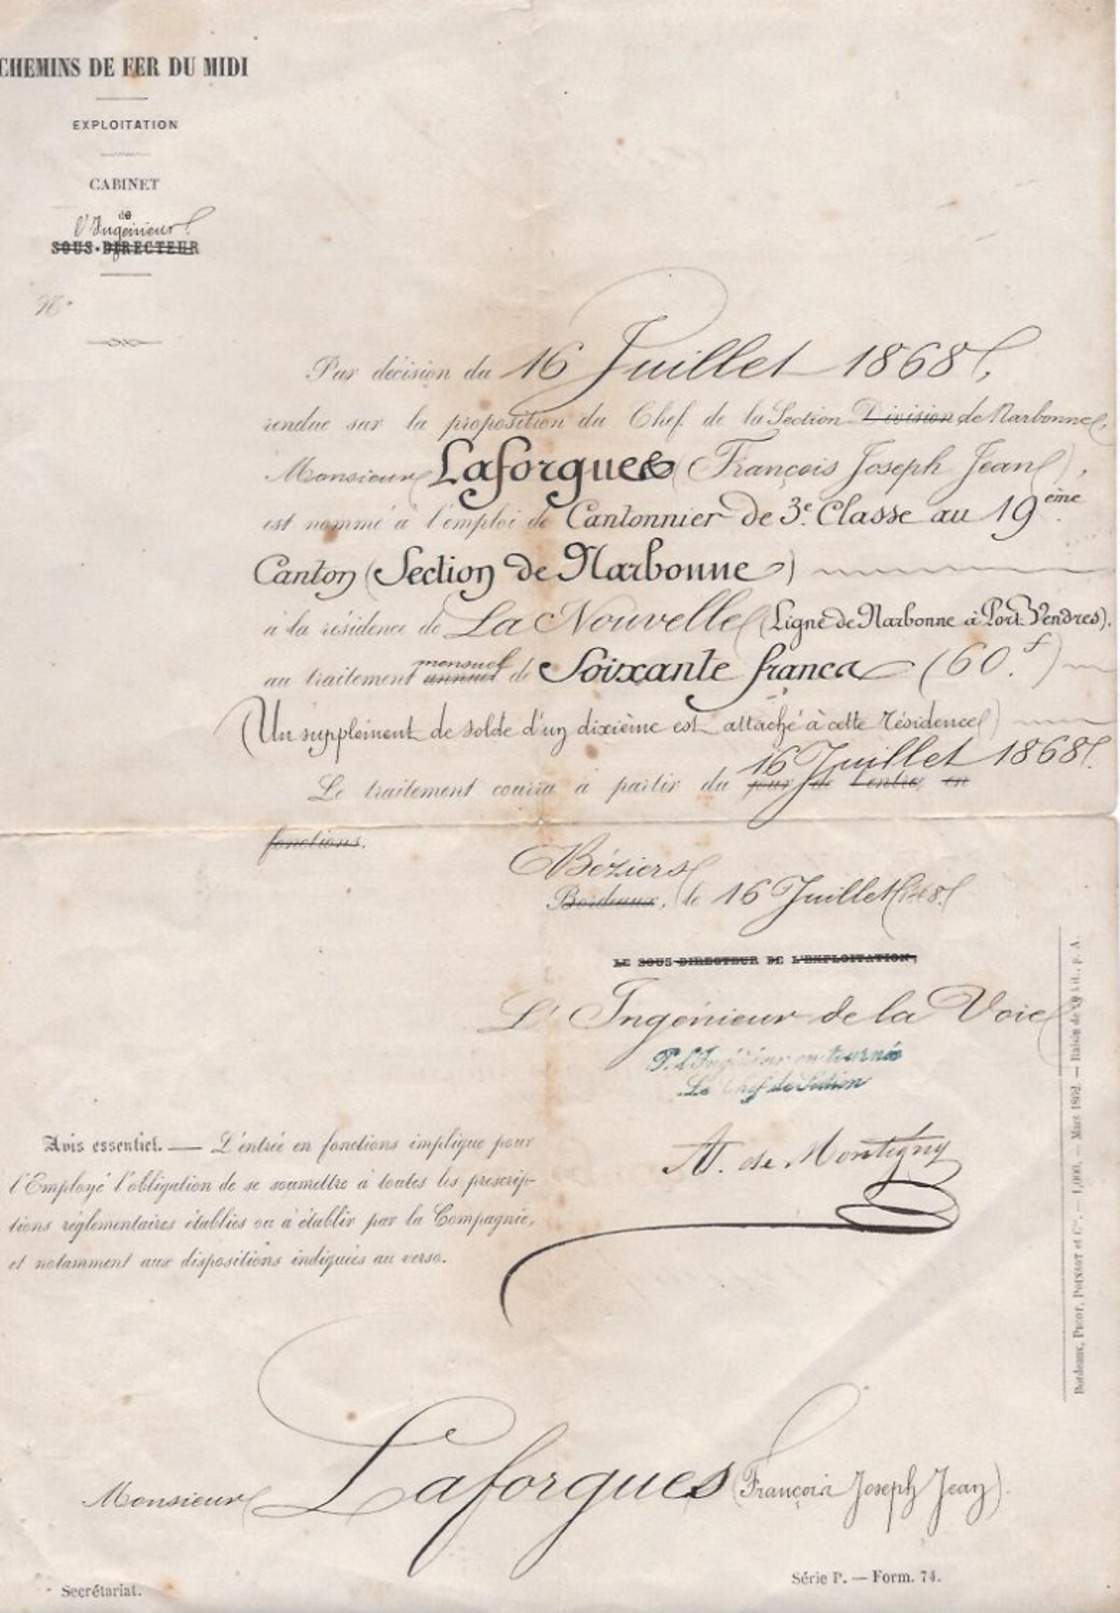 CHEMINS DE FER DU MIDI
EXPLOITATION
CABINET
de
l'Ingénieur
SOUS-DIRECTEUR
N°
Par décision du 16 Juillet 1868,
rendue sur la proposition du Chef de la Section Division de Narbonne,
Monsieur Laforgues (François Joseph Jean),
est nommé à l'emploi de Cantonnier de 3e Classe au 19ème
Canton (Section de Narbonne)
à la résidence de La Nouvelle (Ligne de Narbonne à Port Vendres).
mensuel
au traitement annuel de Soixante francs (60.f)
(Un supplément de solde d'un dixième est attaché à cette résidence)
16 Juillet 1868.
Le traitement courra à partir du jour de l'entrée en
fonctions.
Béziers
Bordeaux, le 16 Juillet 1868
LE SOUS-DIRECTEUR DE L'EXPLOITATION,
L'Ingénieur de la Voie
P. l'Ingénieur en tournée
Le Chef de Section
A. de Montigny
Avis essentiel. — L'entrée en fonctions implique pour
l'Employé l'obligation de se soumettre à toutes les prescrip-
tions réglementaires établies ou à établir par la Compagnie,
et notamment aux dispositions indiquées au verso.
Monsieur Laforgues (François Joseph Jean).
Secrétariat.
Série P. — Form. 74.
Bordeaux, PICOT, POINSOT et Ce. — 1,000. — Mars 1862. — Raisin de